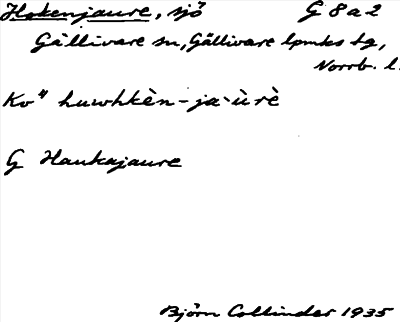 Hakenjaure, sjö G 8 a 2
Gällivare sn, Gällivare lpmks tg,
Norrb. l.
Kv" huwhkèn-ja`ùrè
G Haukajaure
Björn Collinder 1935